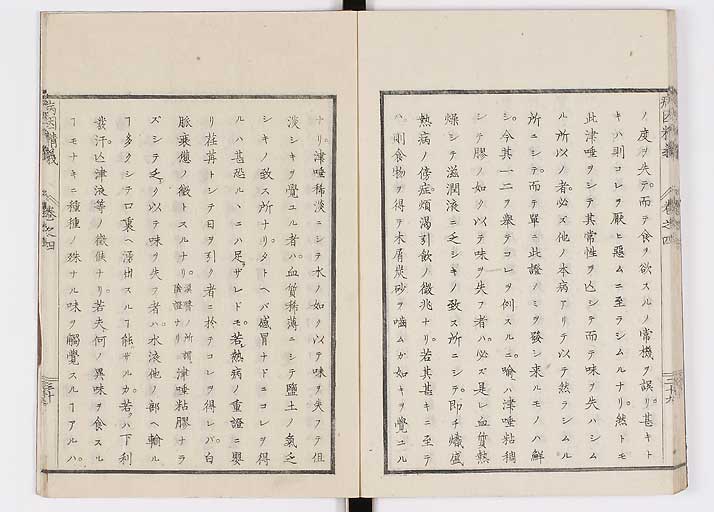 ノ度ヲ失テ。而テ食ヲ欲スルノ常機ヲ誤リ。甚キト
キハ則コレヲ厭ヒ惡ムニ至ラシムルナリ。然トモ
此津唾ヲシテ其常性ヲ亡シテ而テ味ヲ失ハシム
ル所以ノ者。必ズ他ノ本病アリテ以テ然ラシムル
所ニシテ。而テ單ニ此證ノミヲ發シ来ルモノハ鮮
シ。今其一二ヲ舉テコレヲ例スルニ。喩ハ津唾粘稠
シテ膠ノ如ク以テ味ヲ失フ者ハ。必ズ是レ血質熱
燥シテ滋潤液ニ乏シキノ致ス所ニシテ。即チ熾盛
熱病ノ傍症煩渴引飲ノ徴兆ナリ。若其甚キニ至テ
ハ則食物ヲ得テ木屑炭砂ヲ嚙ムガ如キヲ覺エル
病因精義 卷之四
ナリ。津唾稀淡ニシテ水ノ如ク以テ味ヲ失フテ但
淡シキヲ覺ユル者ハ。血質稀薄ニシテ鹽土ノ氣乏
シキノ致ス所ナリ。タトヘバ感冒ナドニコレヲ得
ルハ甚恐ルヽニハ足ザレドモ。若熱病ノ重證ニ嬰
リ荏苒トシテ日ヲ引ク者ニ於テコレヲ得レバ。白
脈衰憊ノ徴トスルナリ。漢醫ノ所謂陰證ナリ津唾粘膠ナラ
ズシテ乏ク以テ味ヲ失フ者ハ。水液他ノ部ヘ輸ル
ヿ多クシテ口裏ヘ滲出スルヿ能ザルカ。若ハ下利
發汗。亡津液等ノ徴候ナリ。若夫何ノ異味ヲ食スル
ヿモナキニ種種ノ殊ナル味ヲ觸覺スルヿアルハ。
病因精義 卷之四